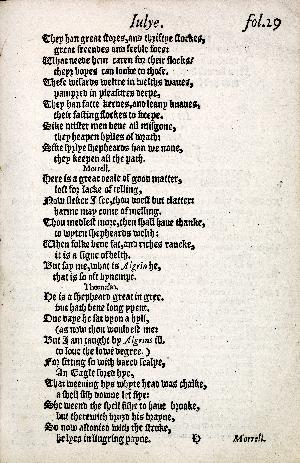 Iulye. fol.29
They han great stores, and thriftye stockes,
great freendes and feeble foes:
What neede hem caren for their flocks?
theyr boyes can looke to those.
These wisards weltre in welths waues,
pampred in pleasures deepe,
They han fatte kernes, and leany knaues,
their fasting flockes to keepe.
Sike mister men bene all misgone,
they heapen hylles of wrath:
Sike syrlye shepheards han we none,
they keepen all the path.
Morrell.
Here is a great deale of good matter,
lost for lacke of telling,
Now sicker I see, thou doest but clatter:
harme may come of melling.
Thou medlest more, then shall haue thanke,
to wyten shepheards welth:
When folke bene fat, and riches rancke,
it is a signe of helth.
But say me, what is Algrin he,
that is so oft bynempt.
Thomalin.
He is a shepheard great in gree,
but hath bene long ypent.
One daye he sat vpon a hyll,
(as now thou wouldest me:
But I am taught by Algrins ill,
to loue the lowe degree.)
For sitting so with bared scalpe,
An Eagle sored hye,
That weening hys whyte head was chalke,
a shell fish downe let flye:
She weend the shell fishe to haue broake,
but therewith bruzd his brayne,
So now astonied with the stroke,
he lyes in lingring payne.
D Morrell.